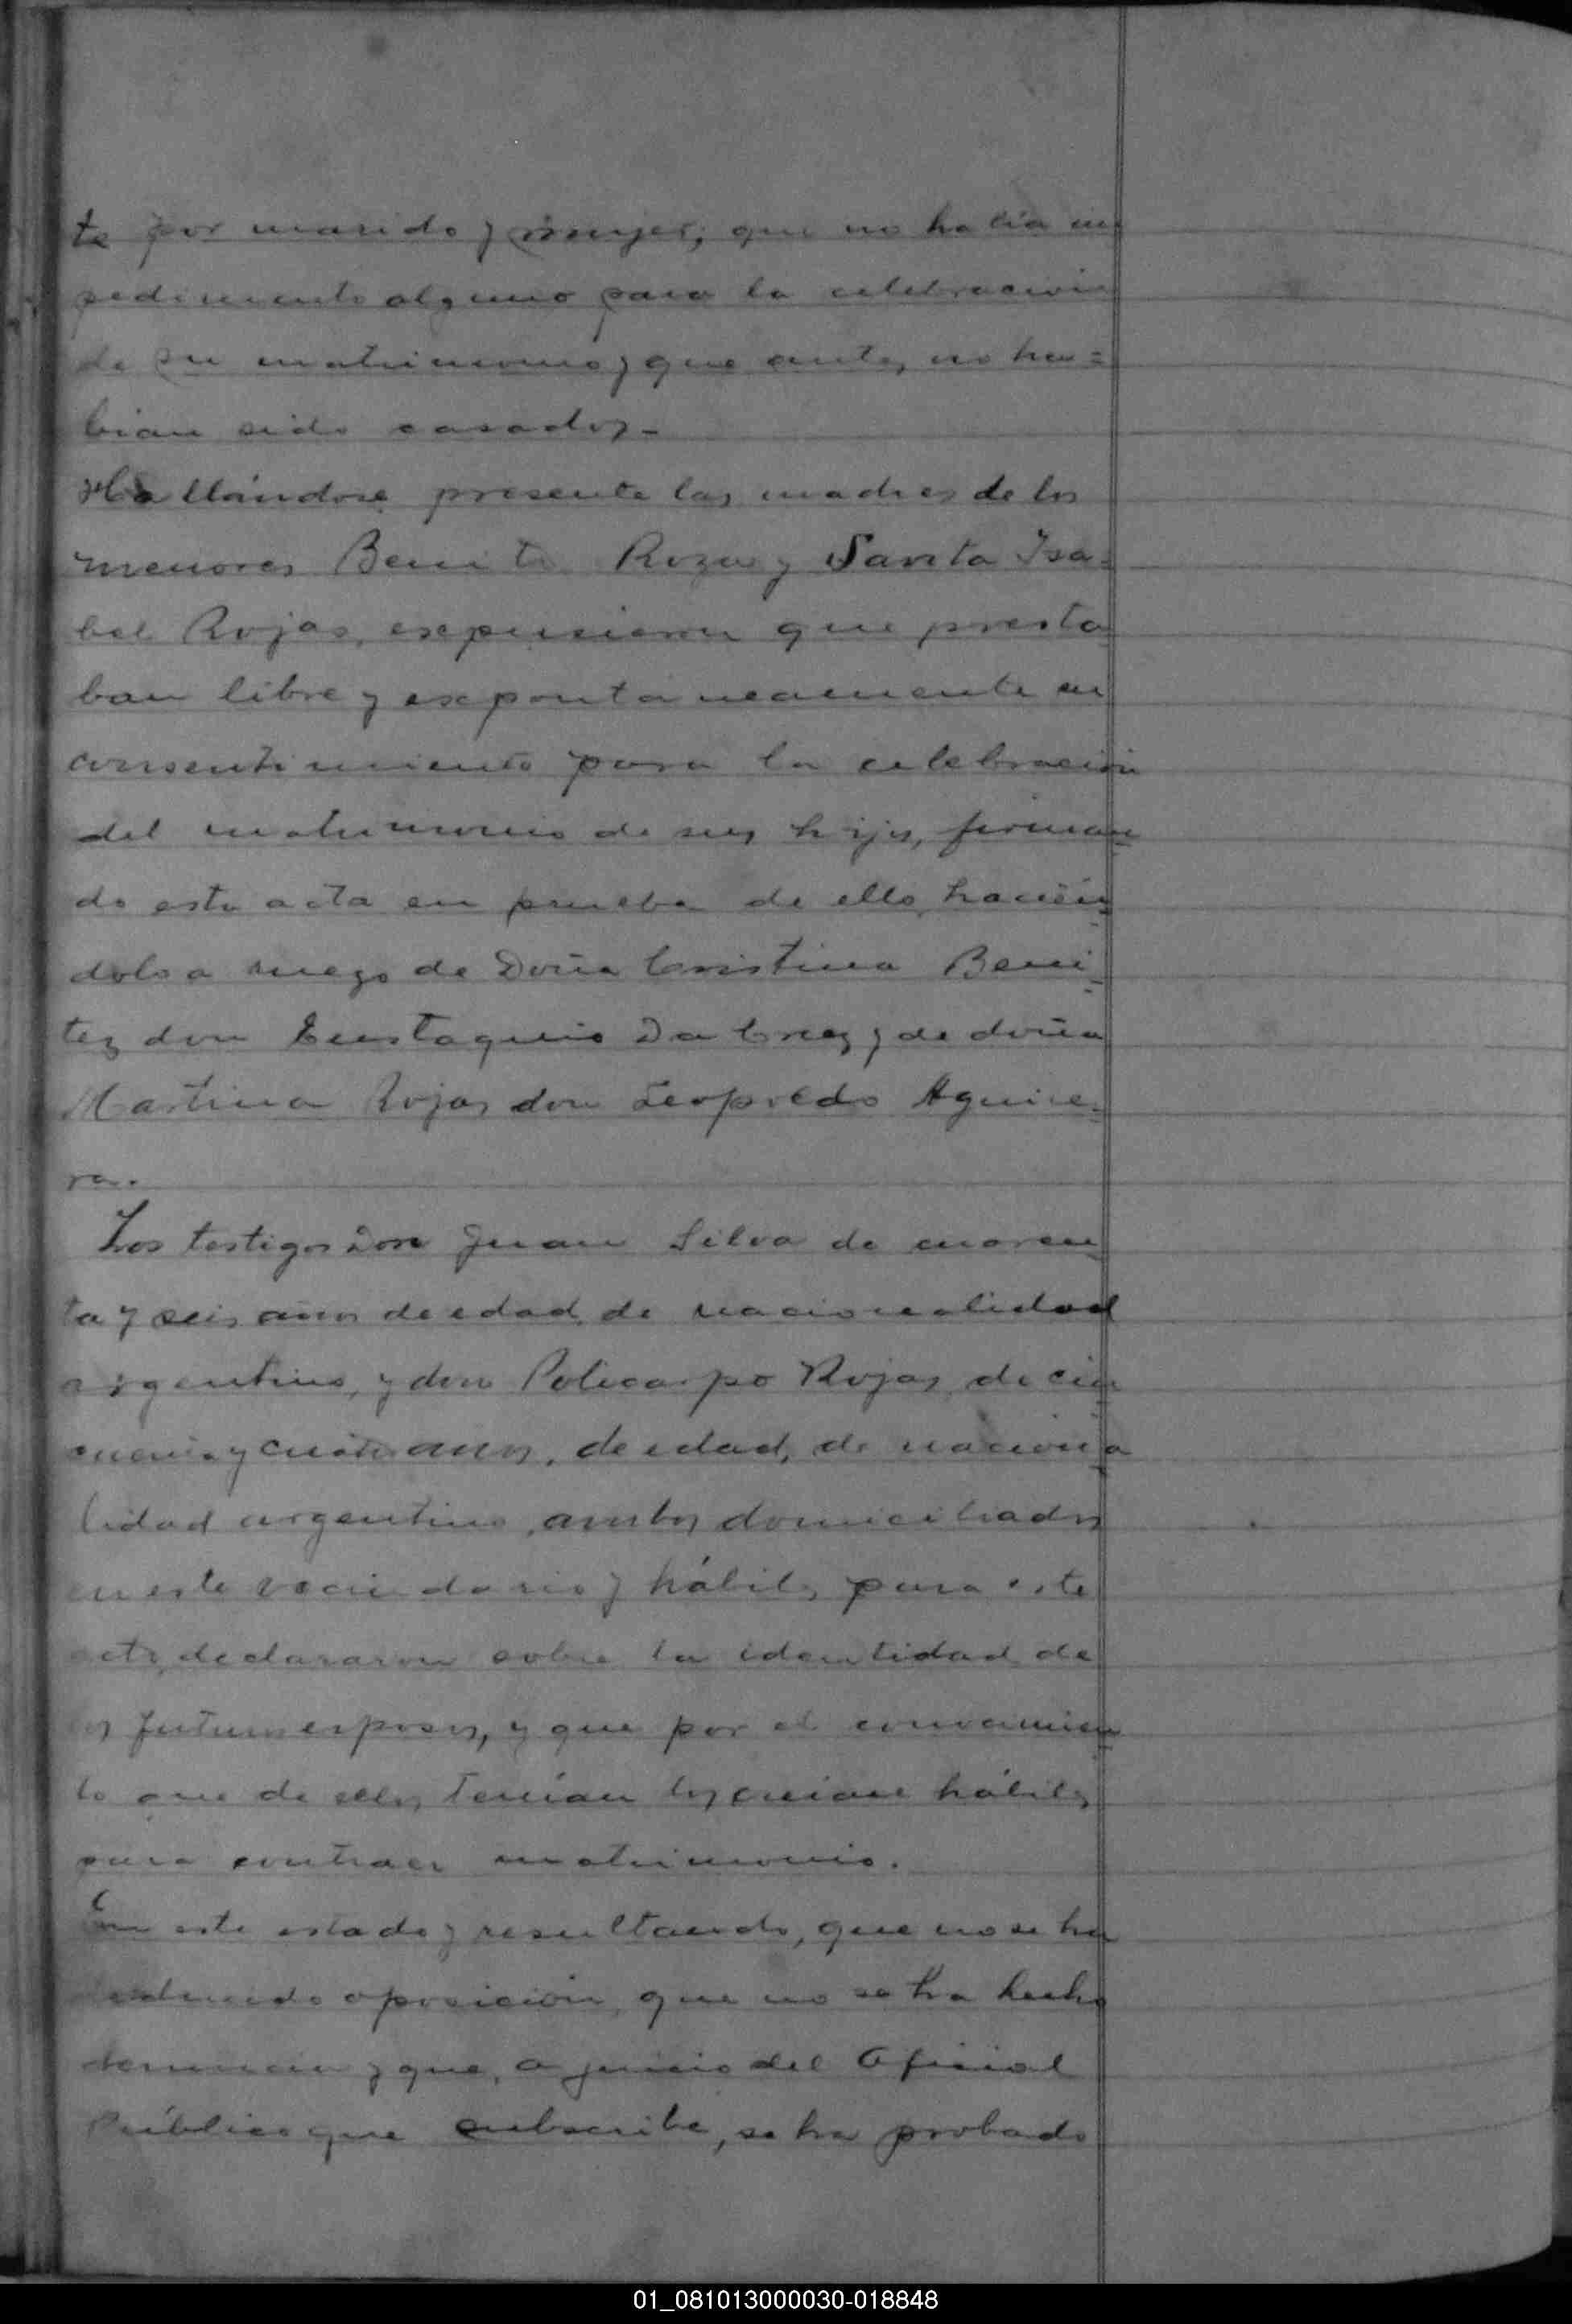 te por marido y mujer; que no había im
pedimento alguno para la celebración
de su matrimonio y que antes no ha=
bian sido casados-
Hallándose presente las madres de los
menores Benito Rozas y Santa Isa=
bel Rojas, expusieron que presta
ban libre y expontaneamente su
consentimiento para la celebración
del matrimonio de sus hijos, firman
do esta acta en prueba de ello, hacién
dolo a ruego de Doña Cristina Bení
tez don Eustaquio Da Cruz y de doña
Martina Rojas don Leopoldo Aguire-
ra.
Los testigos Don Juan Silva de cuaren
ta y seis años de edad, de nacionalidad
argentino, y don Policarpo Rojas, de cin
cuenta y cuatro años, de edad, de naciona
lidad argentino, ambos domiciliados
en este vecindario y hábiles para este
acto, declararon sobre la identidad de
los futuros esposos, y que por el conocimien
to que de ellos tenían los creian hábiles
para contraer matrimonio.
En este estado y resultando, que no se ha
deducido oposición, que no se ha hecho
denuncia y que, a juicio del Oficial
Público que subscribe, se ha probado
01_081013000030-018848